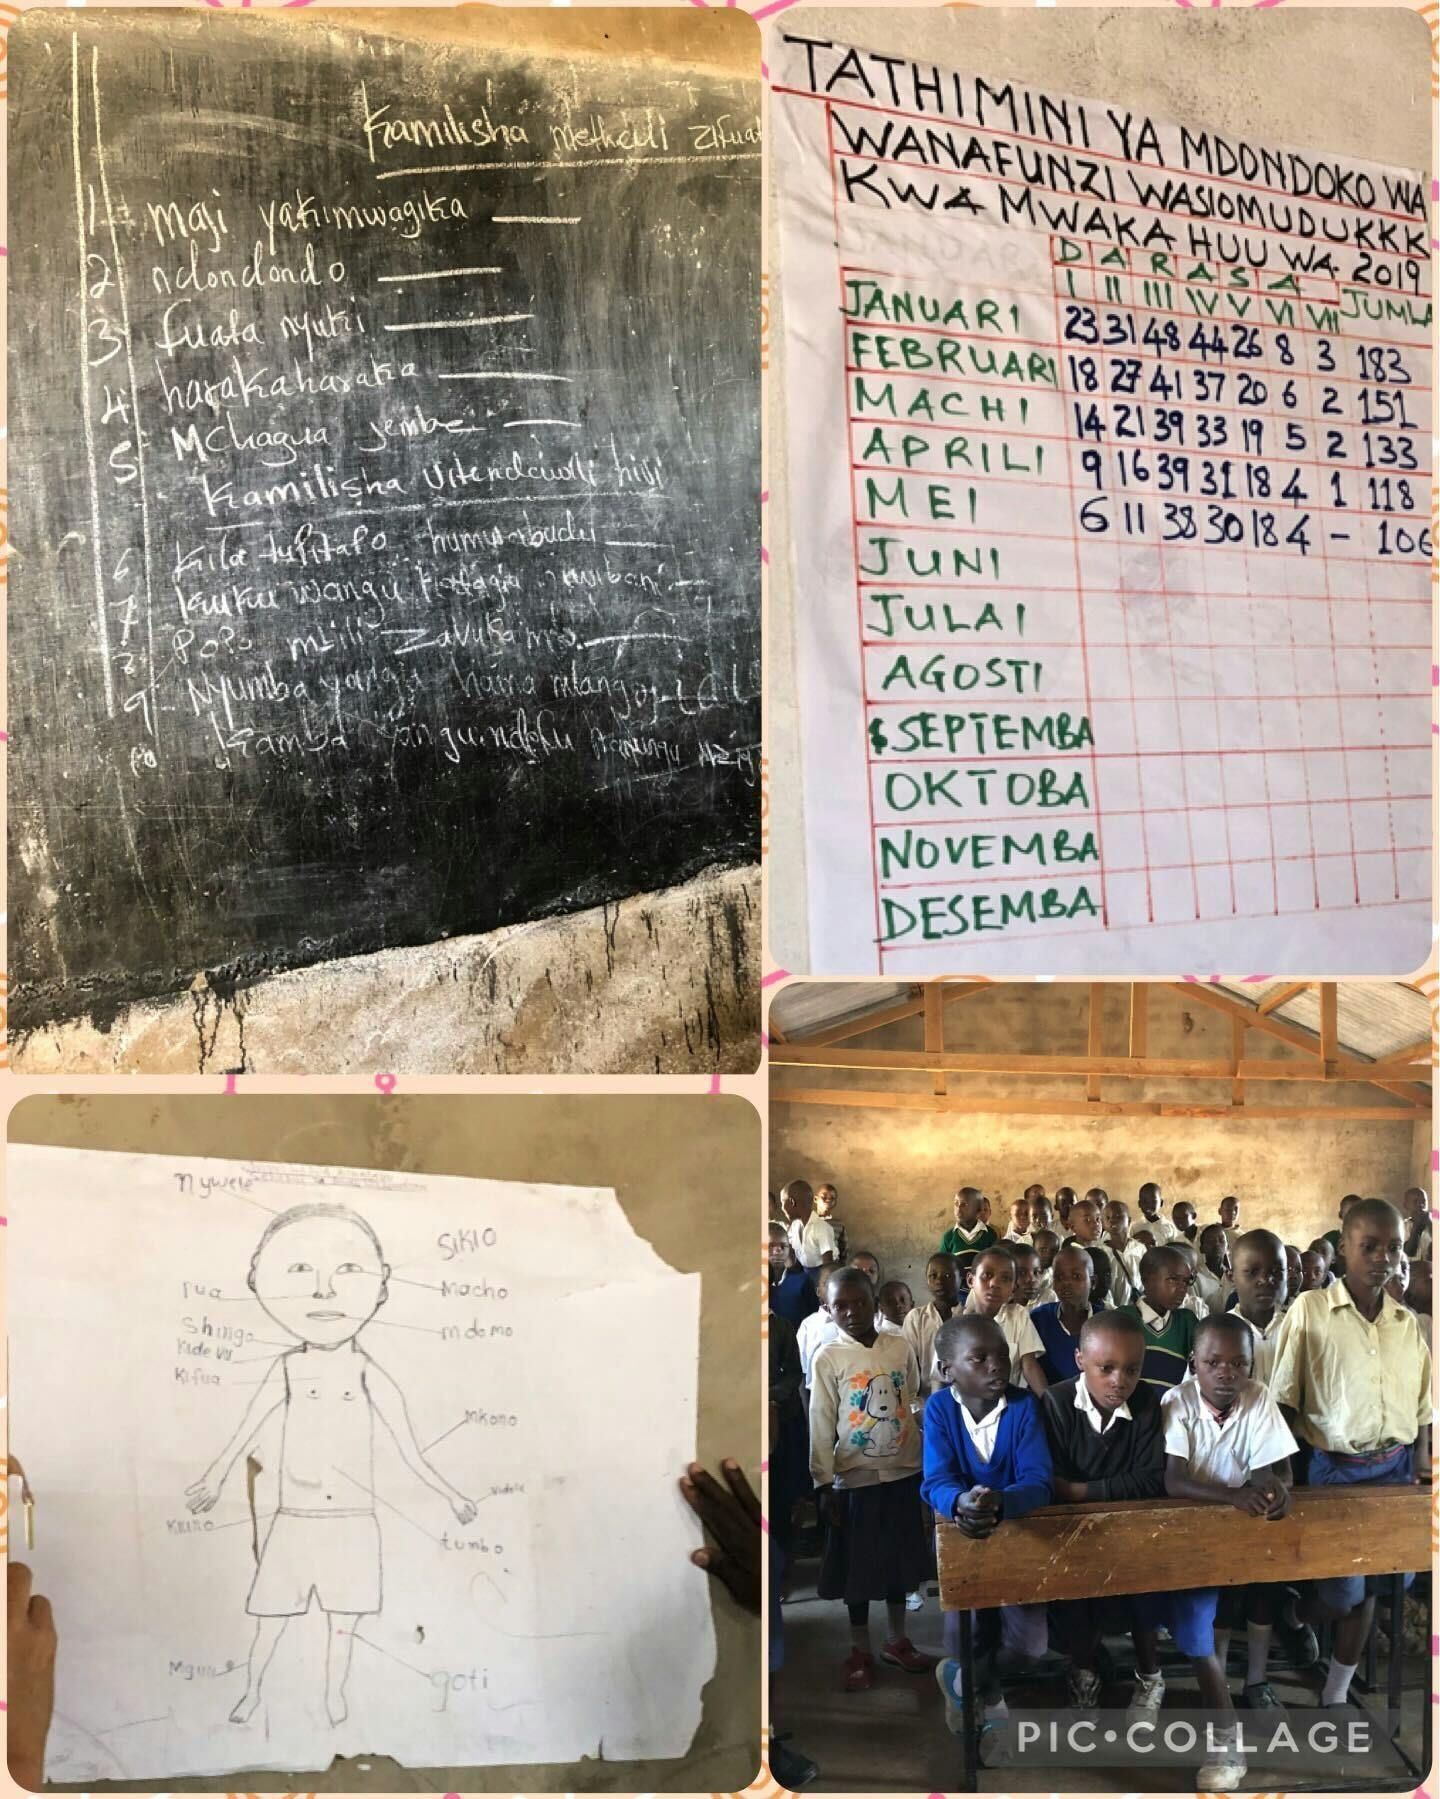 Kamilisha methali zifuat
1 maji yakimwagika
2 ndondondo
3 fuata nyuki
4 harakaharaka
5 Mchagua jembe
Kamilisha Vitendawili hivi
6 Kila nipitapo humwabudu
7 Kuku wangu nyumbani
8 Popo mbili zavuka mto
9 Nyumba yangu haina mlango
10 Kamba yangu ndefu
TATHIMINI YA MDONDOKO WA
WANAFUNZI WASIOMUDU KKK
KWA MWAKA HUU WA 2019
DARASA
I II III IV V VI VII JUMLA
JANUARI 23 31 48 44 26 8 3 183
FEBRUARI 18 27 41 37 20 6 2 151
MACHI 14 21 39 33 19 5 2 133
APRILI 9 16 39 31 18 4 1 118
MEI 6 11 38 30 18 4 - 106
JUNI
JULAI
AGOSTI
SEPTEMBA
OKTOBA
NOVEMBA
DESEMBA
nywele
SIKIO
Pua
Macho
Shingo
mdomo
Kidevu
Kifua
mkono
Kiuno
tumbo
Mguu
goti
PIC•COLLAGE